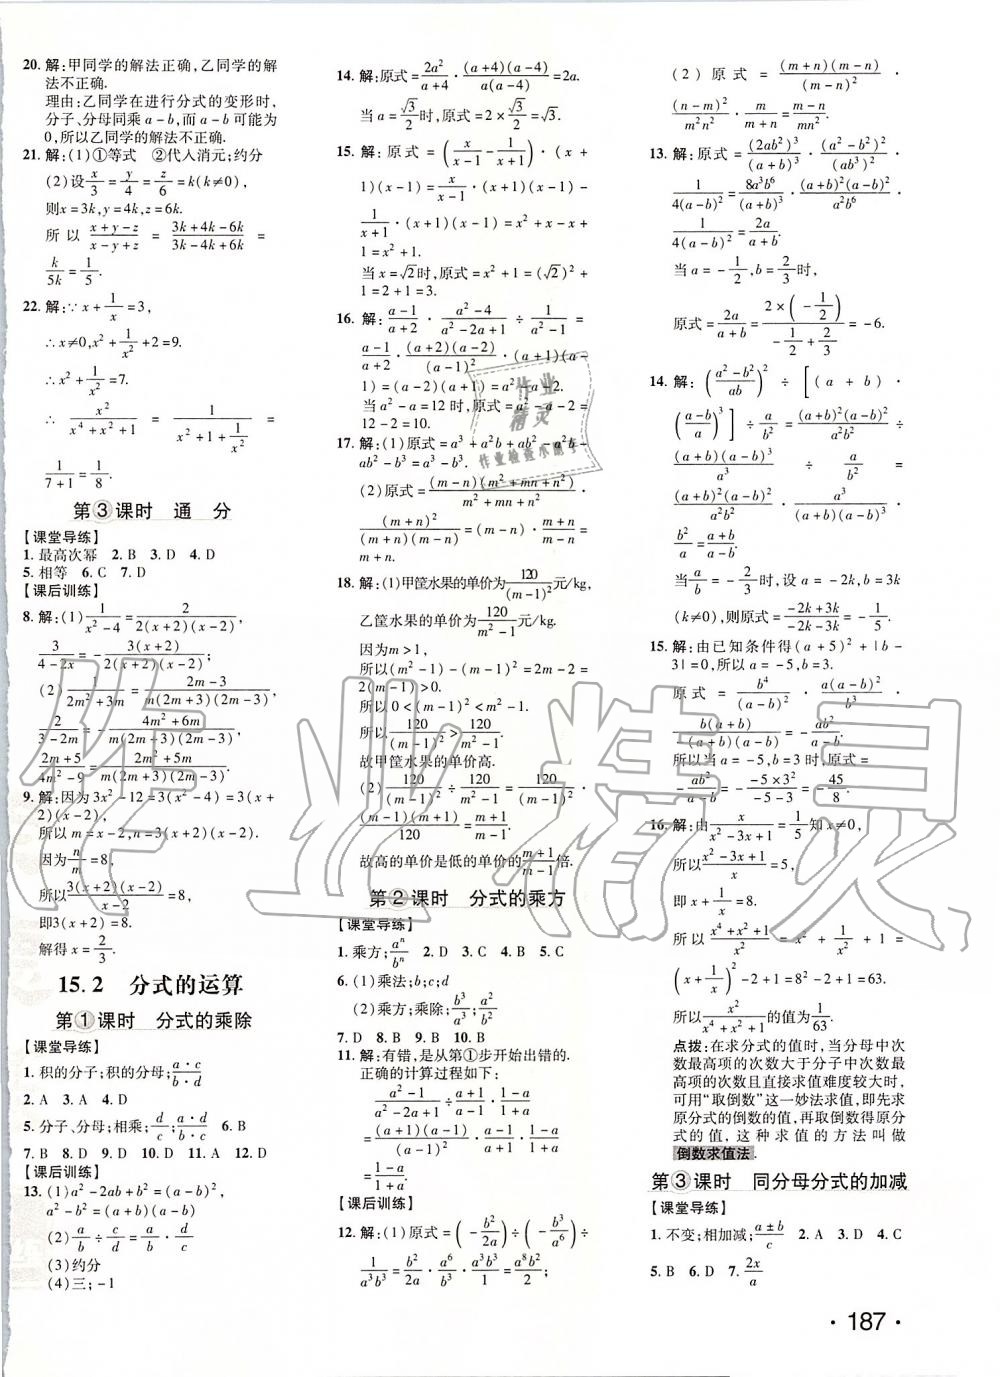 20. 解:甲同学的解法正确,乙同学的解
法不正确.
理由:乙同学在进行分式的变形时,
分子、分母同乘 a-b,而 a-b 可能为
0,所以乙同学的解法不正确.
21. 解:(1)①等式 ②代人消元;约分
(2)设x/3=y/4=z/6=k(k≠0),
则x=3k,y=4k,z=6k.
所以 (x+y-z)/(x-y+z) = (3k+4k-6k)/(3k-4k+6k) =
k/5k=1/5.
22. 解:∵x+1/x=3,
∴x≠0,x²+1/x²+2=9.
∴x²+1/x²=7.
∴ x²/(x⁴+x²+1) = 1/(x²+1+1/x²) =
1/(7+1)=1/8.
第③课时 通 分
【课堂导练】
1. 最高次幂 2. B 3. D 4. D
5. 相等 6. C 7. D
【课后训练】
8. 解:(1)1/(x²-4)=2/(2(x+2)(x-2)),
3/(4-2x)=-3(x+2)/(2(x+2)(x-2));
(2)1/(2m²+3m)=(2m-3)/(m(2m+3)(2m-3)),
2/(3-2m)=-(4m²+6m)/(m(2m+3)(2m-3)),
(2m+5)/(4m²-9)=(2m²+5m)/(m(2m+3)(2m-3)).
9. 解:因为3x²-12=3(x²-4)=3(x+
2)(x-2),
所以 m=x-2,n=3(x+2)(x-2).
因为n/m=8,
所以3(x+2)(x-2)/(x-2)=8,
即3(x+2)=8.
解得 x=2/3.
15.2 分式的运算
第①课时 分式的乘除
【课堂导练】
1. 积的分子;积的分母;(a·c)/(b·d)
2. A 3. A 4. A
5. 分子、分母;相乘;d/c;(a·d)/(b·c) 6. B
7. B 8. D 9. D 10. D 11. A 12. D
【课后训练】
13. (1)a²-2ab+b²=(a-b)²,
a²-b²=(a+b)(a-b)
(2)a/b÷c/d=a/b·d/c
(3)约分
(4)三;-1
14. 解:原式=2a²/(a+4)·(a+4)(a-4)/(a(a-4))=2a.
当 a=√3/2时,原式=2×√3/2=√3.
15. 解:原式=(x/(x-1)-1/(x+1))·(x+
1)(x-1)=x/(x-1)·(x+1)(x-1)-
1/(x+1)·(x+1)(x-1)=x²+x-x+
1=x²+1.
当x=√2时,原式=x²+1=(√2)²+
1=2+1=3.
16. 解:(a-1)/(a+2)·(a²-4)/(a²-2a+1)÷1/(a²-1)=
(a-1)/(a+2)·(a+2)(a-2)/(a-1)²·(a+1)(a-
1)=(a-2)(a+1)=a²-a-2.
当 a²-a=12 时,原式=a²-a-2=
12-2=10.
17. 解:(1)原式=a³+a²b+ab²-a²b-
ab²-b³=a³-b³.
(2)原式=(m-n)(m²+mn+n²)/(m²+mn+n²)·
(m+n)²/((m+n)(m-n))=(m-n)·(m+n)/(m-n)=
m+n.
18. 解:(1)甲筐水果的单价为120/(m-1)²元/kg,
乙筐水果的单价为120/(m²-1)元/kg.
因为m>1,
所以(m²-1)-(m-1)²=2m-2=
2(m-1)>0.
所以 0<(m-1)²<m²-1.
所以120/(m-1)²>120/(m²-1).
故甲筐水果的单价高.
(2)120/(m-1)²÷120/(m²-1)=120/(m-1)²·
(m-1)(m+1)/120=(m+1)/(m-1).
故高的单价是低的单价的(m+1)/(m-1)倍.
第②课时 分式的乘方
【课堂导练】
1. 乘方;aⁿ/bⁿ 2. D 3. C 4. B 5. C
6. (1)乘法;b;c;d
(2)乘方;乘除;b³/a³;b²/a²
7. D 8. B 9. B 10. B
11. 解:有错,是从第①步开始出错的.
正确的计算过程如下:
(a²-1)/(a²-2a+1)÷(a+1)/(a-1)·(1-a)/(1+a)
=(a+1)(a-1)/(a-1)²·(a-1)/(a+1)·(1-a)/(1+a)
=(1-a)/(1+a).
【课后训练】
12. 解:(1)原式=(-b²/2a)÷(-b²/a²)÷
1/(a³b³)=b²/2a·a²/b²·a³b³/1=a⁴b³/2;
(2)原式=(m+n)(m-n)/(m-n)²·
(n-m)²/(m²n²)·m/(m+n)=(m-n)/(mn²).
13. 解:原式=(2ab²)³/(a+b)³·(a²-b²)²/(ab³)²·
1/(4(a-b)²)=8a³b⁶/(a+b)³·(a+b)²(a-b)²/(a²b⁶)·
1/(4(a-b)²)=2a/(a+b).
当 a=-1/2,b=2/3时,
原式=2a/(a+b)=2×(-1/2)/(-1/2+2/3)=-6.
14. 解:((a²-b²)/ab)²÷[(a+b)·
((a-b)/a)³]=(a+b)²(a-b)²/(a²b²)÷
(a+b)(a-b)³/a³·a/(a-b)=
(a+b)²(a-b)²/(a²b²)·a³/((a+b)(a-b)³)·
b²/a=a/(a-b).
当a/b=-2/3时,设 a=-2k,b=3k
(k≠0),则原式=(-2k+3k)/(-2k-3k)=-1/5.
15. 解:由已知条件得(a+5)²+|b-
3|=0,所以 a=-5,b=3.
原式=b⁴/(a-b)²·a(a-b)/b²·
b(a+b)/((a+b)(a-b))=
当 a=-5,b=3 时,原式=
-ab²/(a-b)=-(-5×3²)/(-5-3)=-45/8.
16. 解:由x/(x²-3x+1)=1/5知x≠0,
所以(x²-3x+1)/x=5,
即 x+1/x=8.
所以(x⁴+x²+1)/x²=x²+1/x²+1=
(x+1/x)²-2+1=8²-2+1=63.
所以x²/(x⁴+x²+1)的值为1/63.
点拨:在求分式的值时,当分母中次
数最高项的次数大于分子中次数最
高项的次数且直接求值难度较大时,
可用“取倒数”这一妙法求值,即先求
原分式的倒数的值,再取倒数得原分
式的值,这种求值的方法叫做
倒数求值法.
第③课时 同分母分式的加减
【课堂导练】
1. 不变;相加减;(a±b)/c 2. A 3. D 4. C
5. B 6. D 7. 2x/a
·187·
作业精灵
作业精灵
作业检查小助手